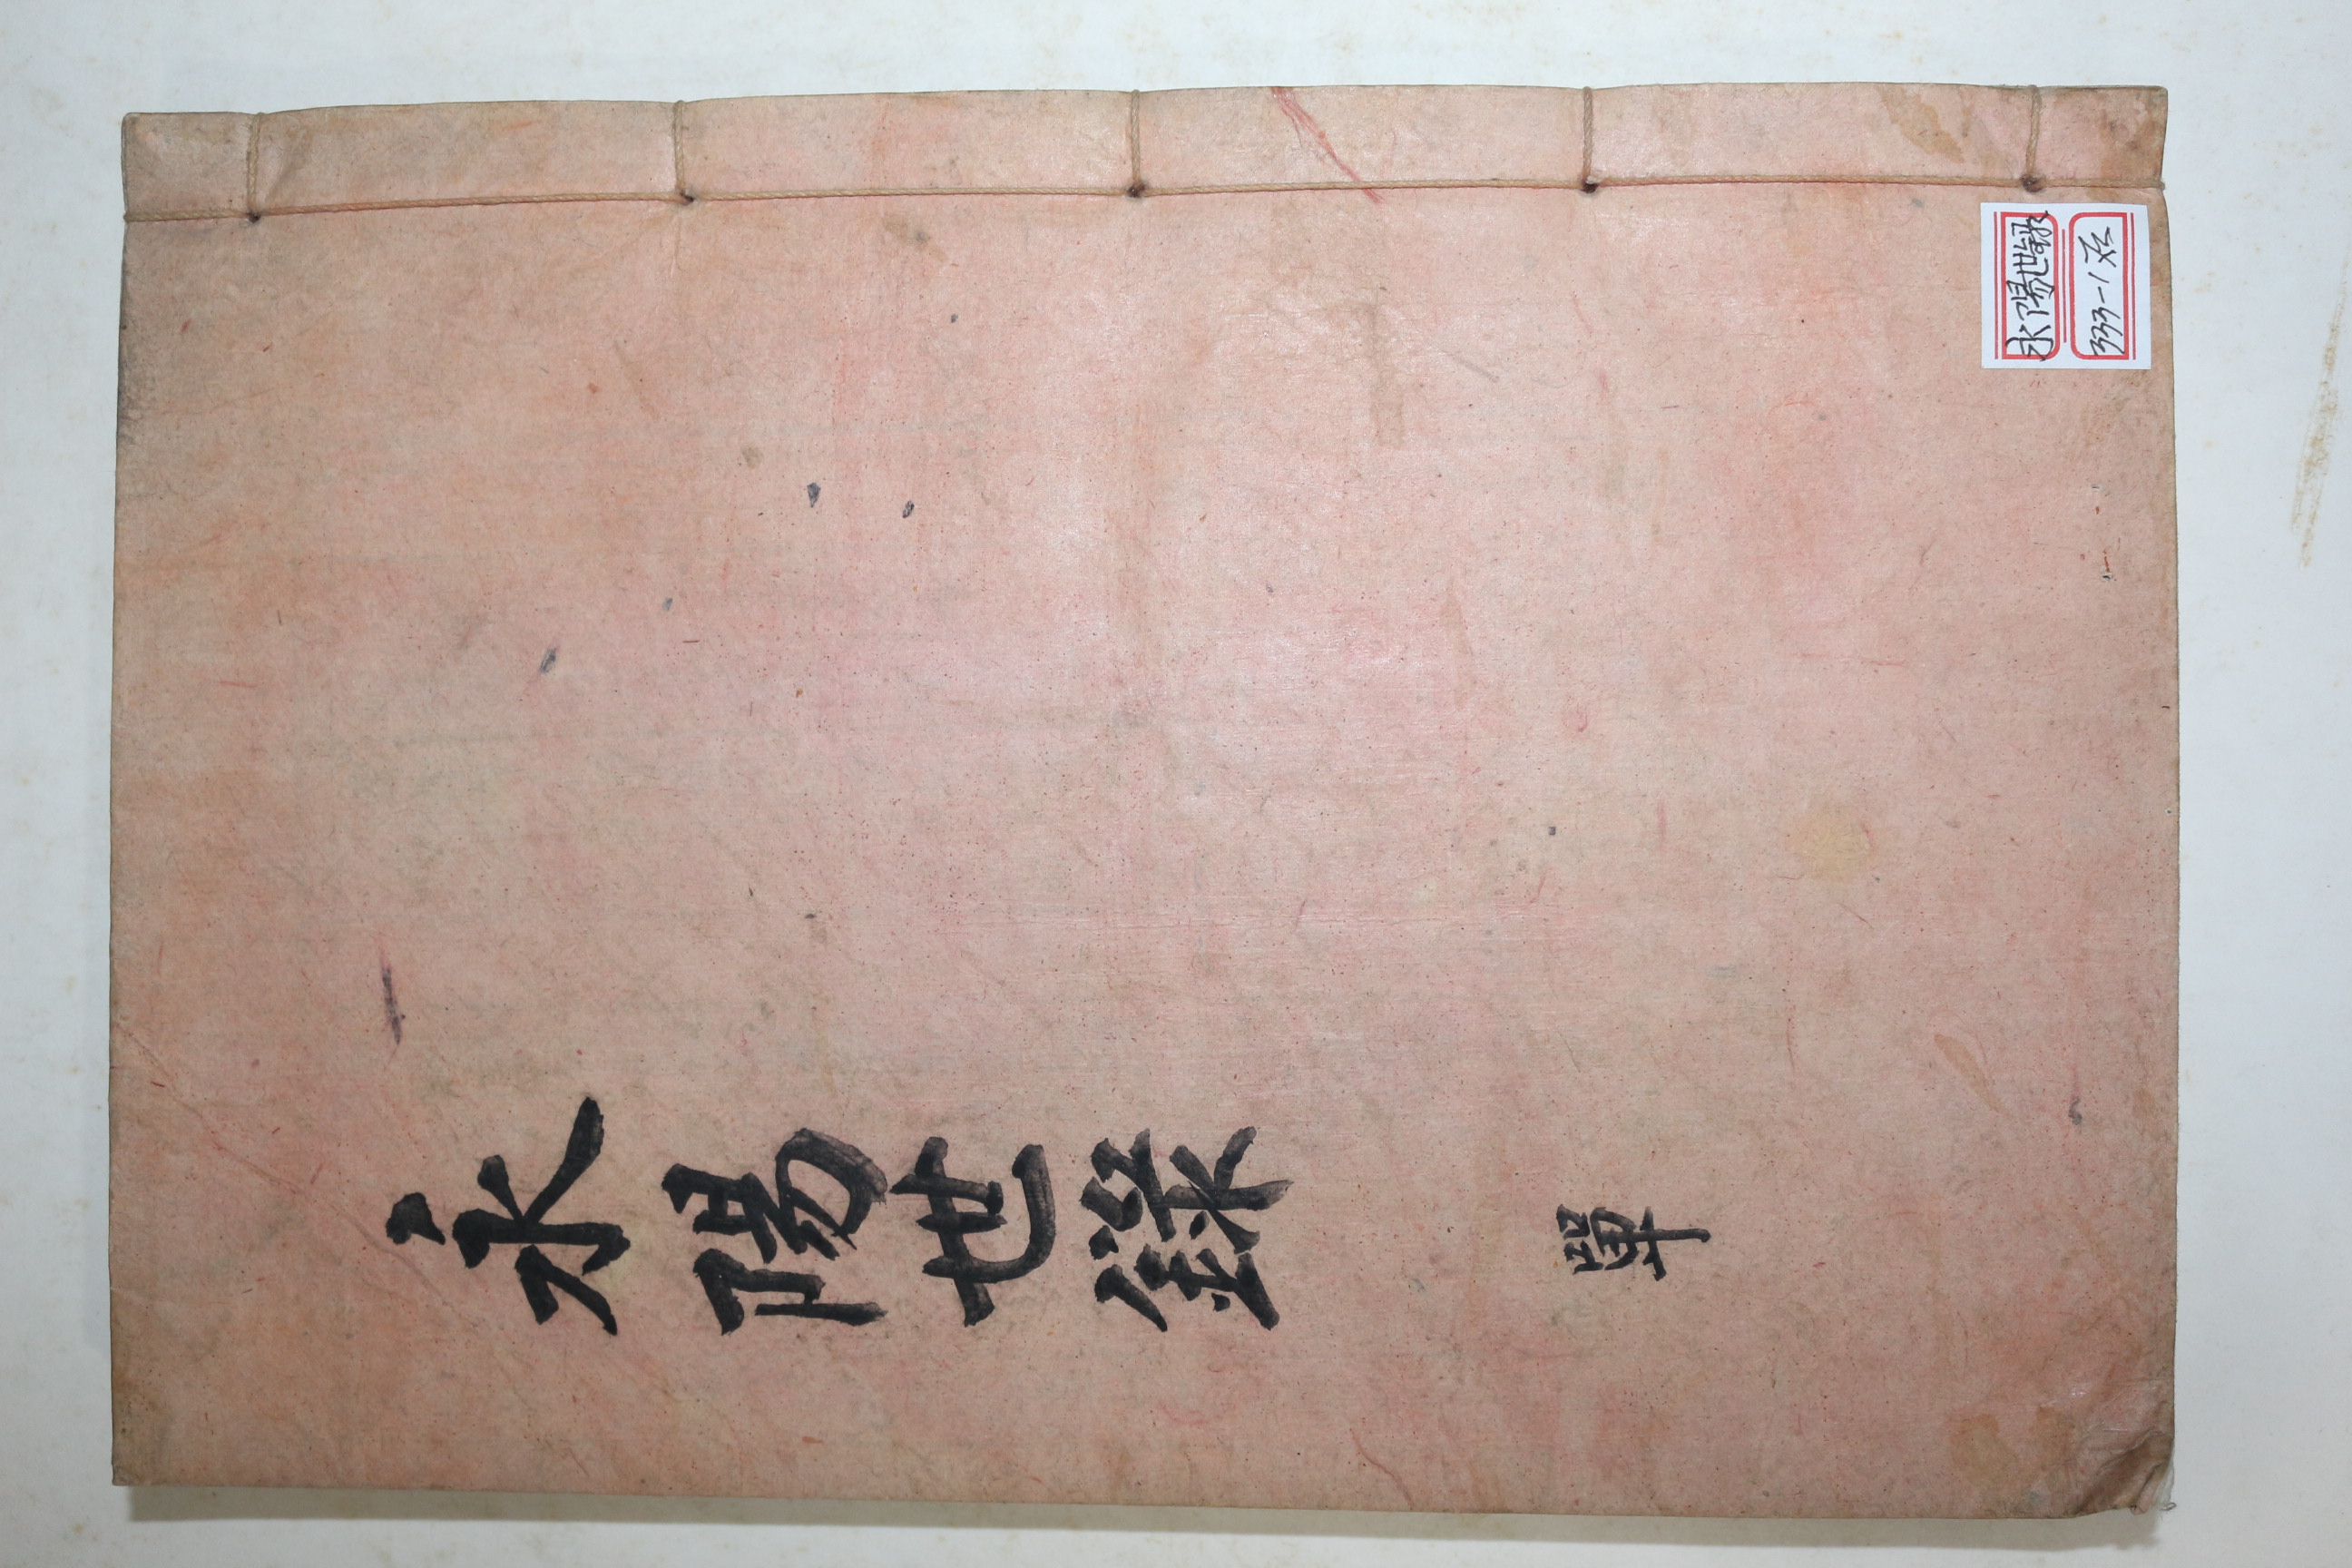 永陽世錄
單
永陽世錄
333-1冾